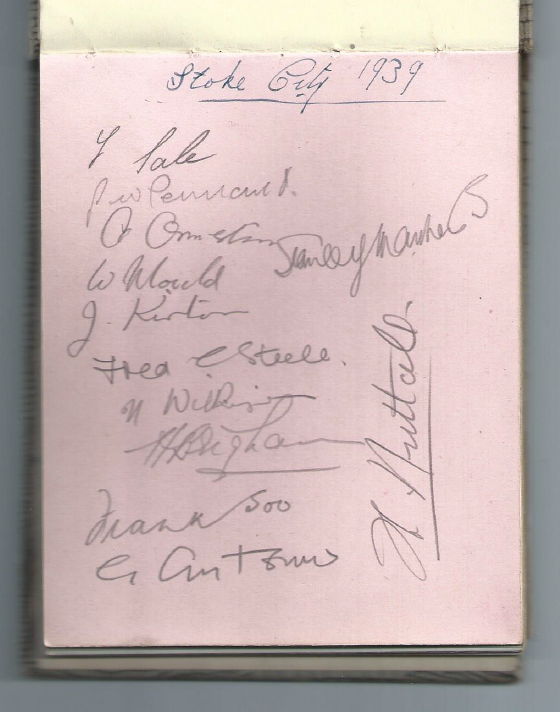 Stoke City 1939
T Sale
A Ormston
Stanley Matthews
W Mould
J. Kirton
Fred C Steele.
N Wilkinson
H Brigham
Frank Soo
G Antonio
H Nuttall